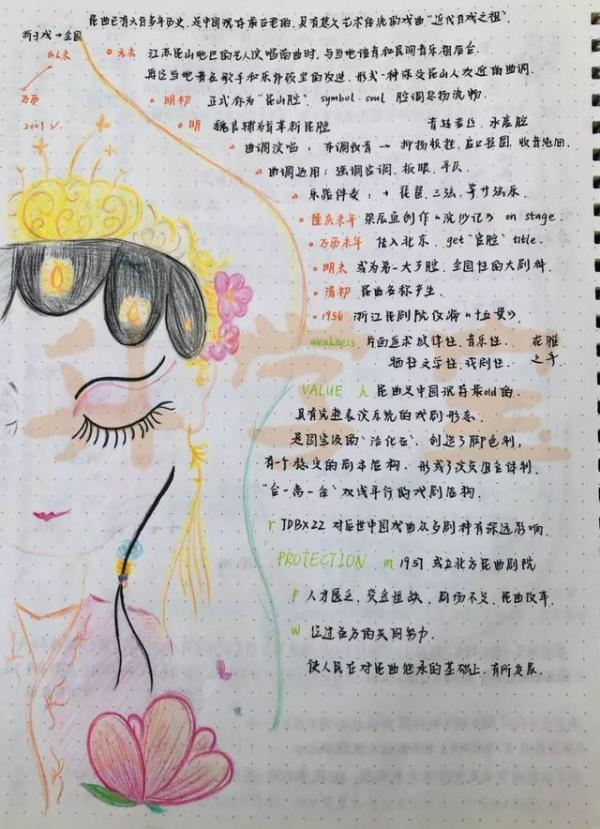 昆曲已有六百多年历史，是中国现存最古老的，具有悠久艺术传统的戏曲"近代百戏之祖"，
折子戏→全国
元末 江苏昆山地区的艺人演唱南曲时，与当地语音和民间音乐相结合，
再经当地著名歌手和乐师顾坚的改进，形成一种深受昆山人欢迎的曲调。
万历
明初 正式称为"昆山腔"，symbol·soul 腔调容易流畅。
2001 v.
明 魏良辅首革新昆腔
曲调演唱：
曲调运用：强调宫调，板眼，平仄
乐器伴奏：+琵琶，三弦，等竹弦乐
隆庆末年 梁辰鱼创作《浣沙记》on stage.
万历末年 传入北京，get"官腔"title.
明末 成为第一大声腔，全国性的大剧种
清初 昆曲名称产生
1956 浙江昆剧院改编《十五贯》
weakness 片面追求规律性，音乐性. 花雅
牺牲文学性，戏剧性. 之争
升学宝
VALUE h 昆曲是中国现存最old的.
具有完整表演系统的戏剧形态.
是国宝级的"活化石"，创造了脚色制，
有一个稳定的剧本结构，
双线平行的戏剧结构.
r TDBX22 对后世中国戏曲众多剧种有深远影响.
PROTECTION m 1957 成立北方昆曲剧院
P 人才匮乏，资金短缺，剧场不足，昆曲改革.
W 经过各方的共同努力.
使人民在对昆曲继承的基础上，有所发展.